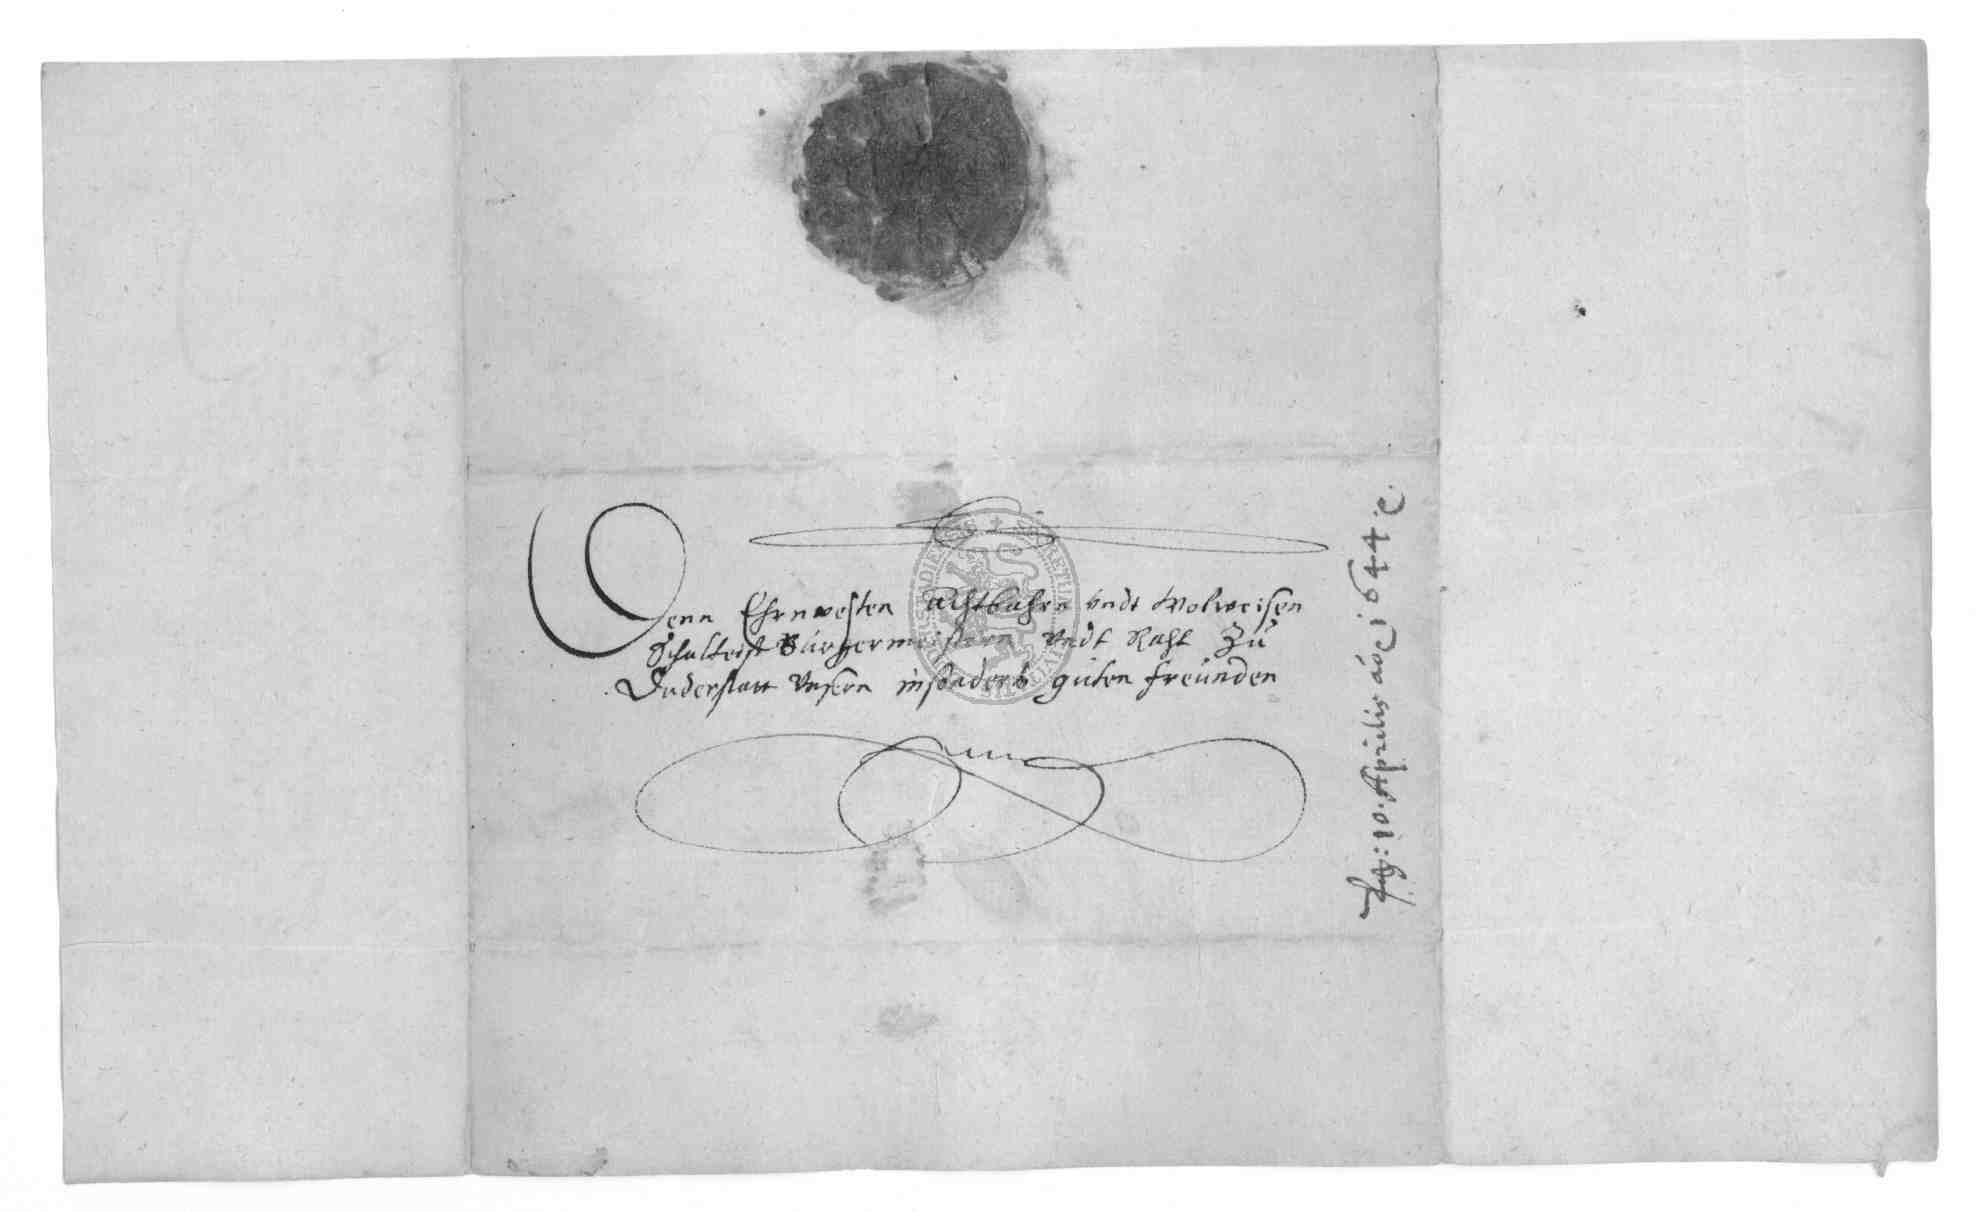 Denn Ehrnvesten Achtbahrn vndt Wolweisen
Schulteist Bürgermeistern vndt Raht Zu
Duderstatt Vnsern insonders guten freunden
10. Aprilis ao 1644